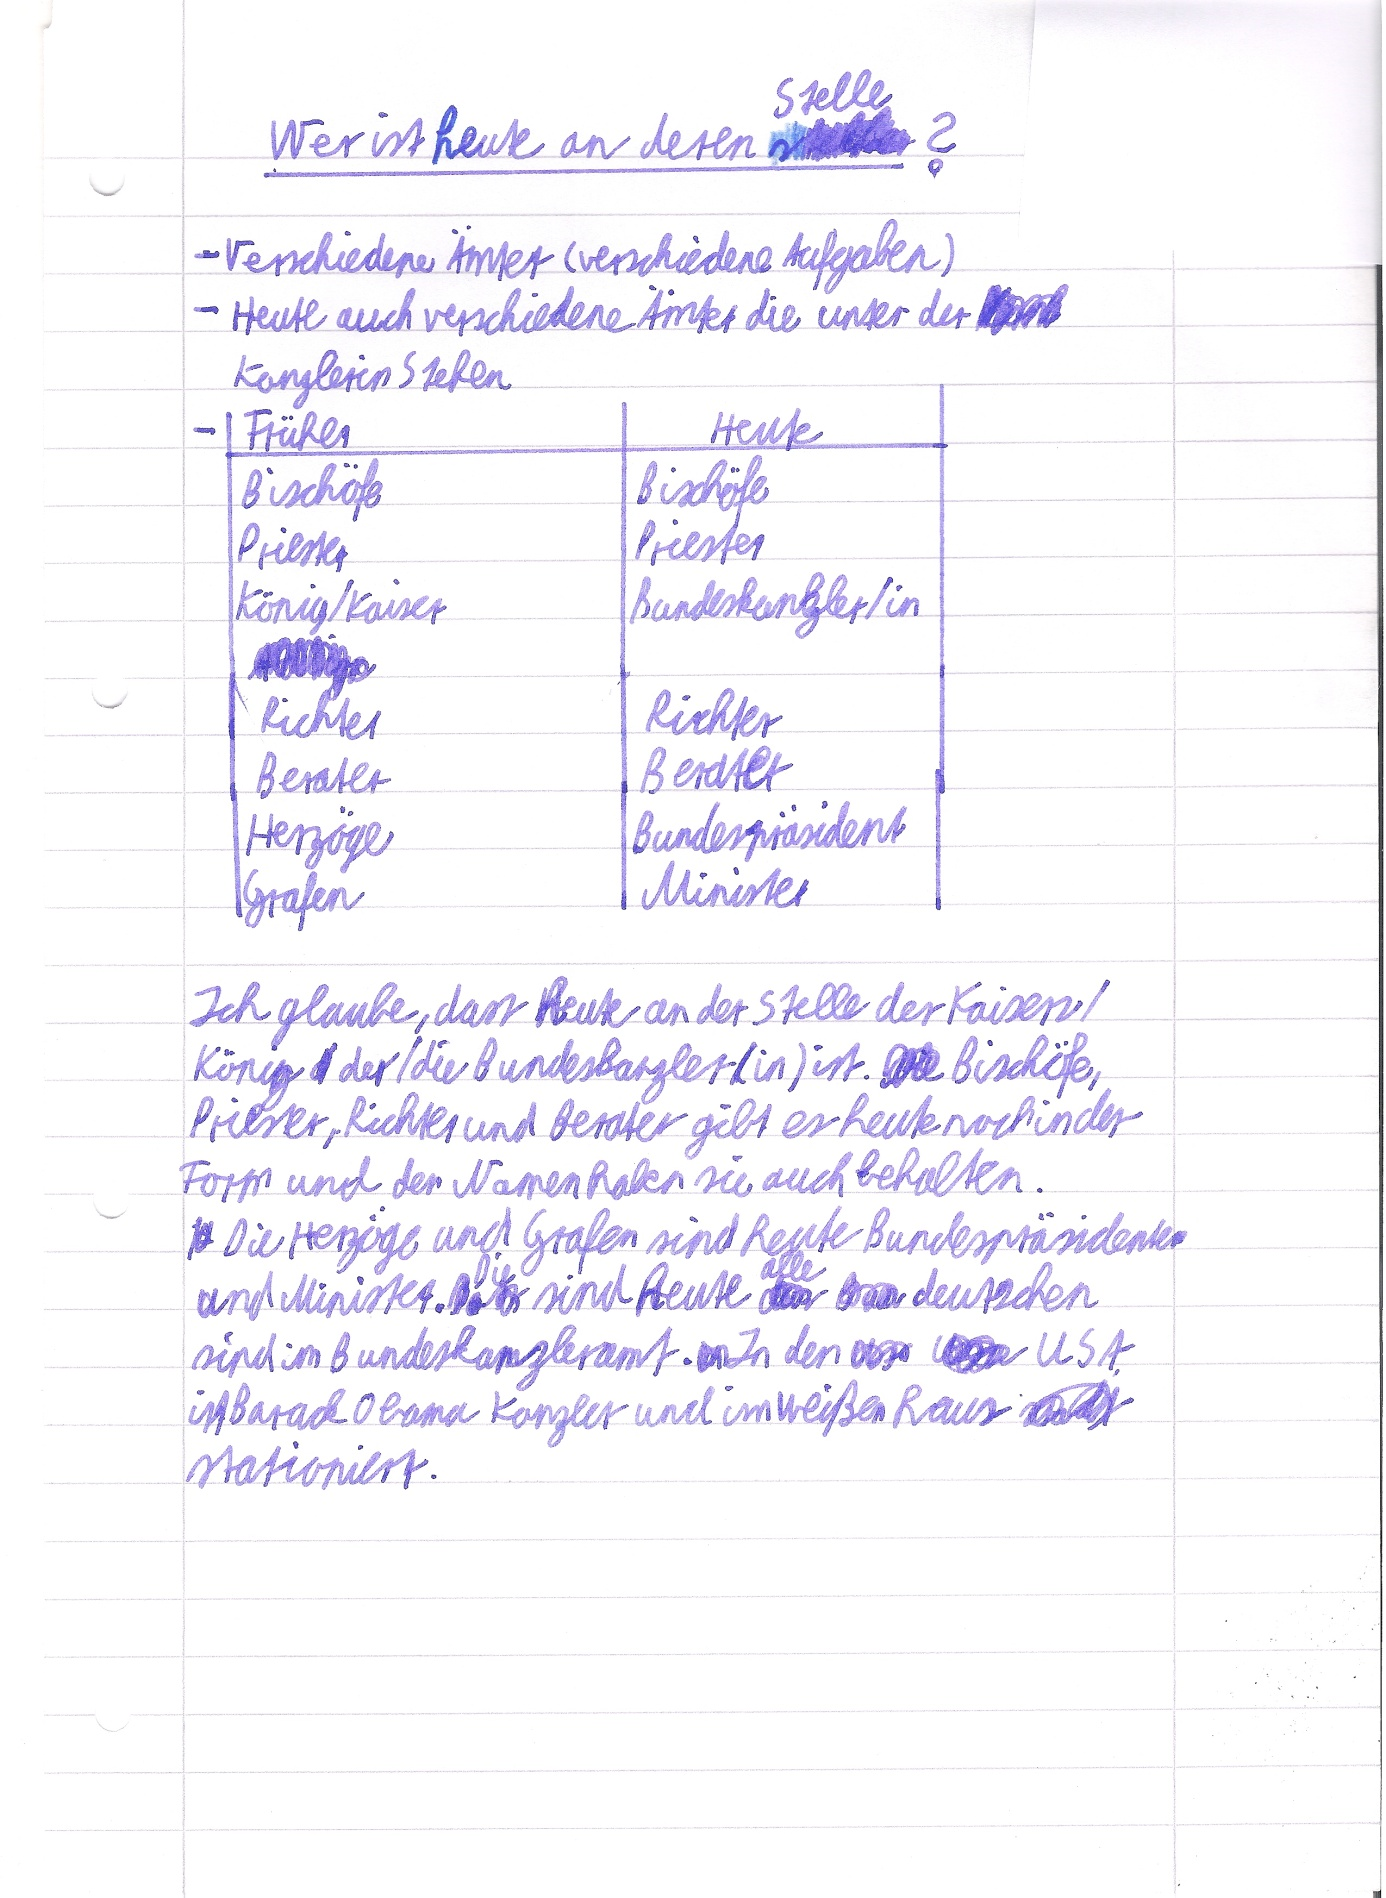 Wer ist heute an deren Stelle ?
- Verschiedene Ämter (verschiedene Aufgaben)
- Heute auch verschiedene Ämter die unter der
Kanzlerin Stehen
- Früher Heute
Bischöfe Bischöfe
Priester Priester
König/Kaiser Bundeskanzler/in
Richter Richter
Berater Berater
Herzöge Bundespräsident
Grafen Minister
Ich glaube, dass heute an der Stelle der Kaisers/
König der/die Bundeskanzler(in) ist. Bischöfe,
Priester, Richter und Berater gibt es heute noch in der
Form und den Namen haben sie auch behalten.
Die Herzöge und Grafen sind heute Bundespräsidenten
und Minister. Die sind heute alle deutschen
sind im Bundeskanzleramt. In den USA
ist Barack Obama Kanzler und im weißen haus
stationiert.